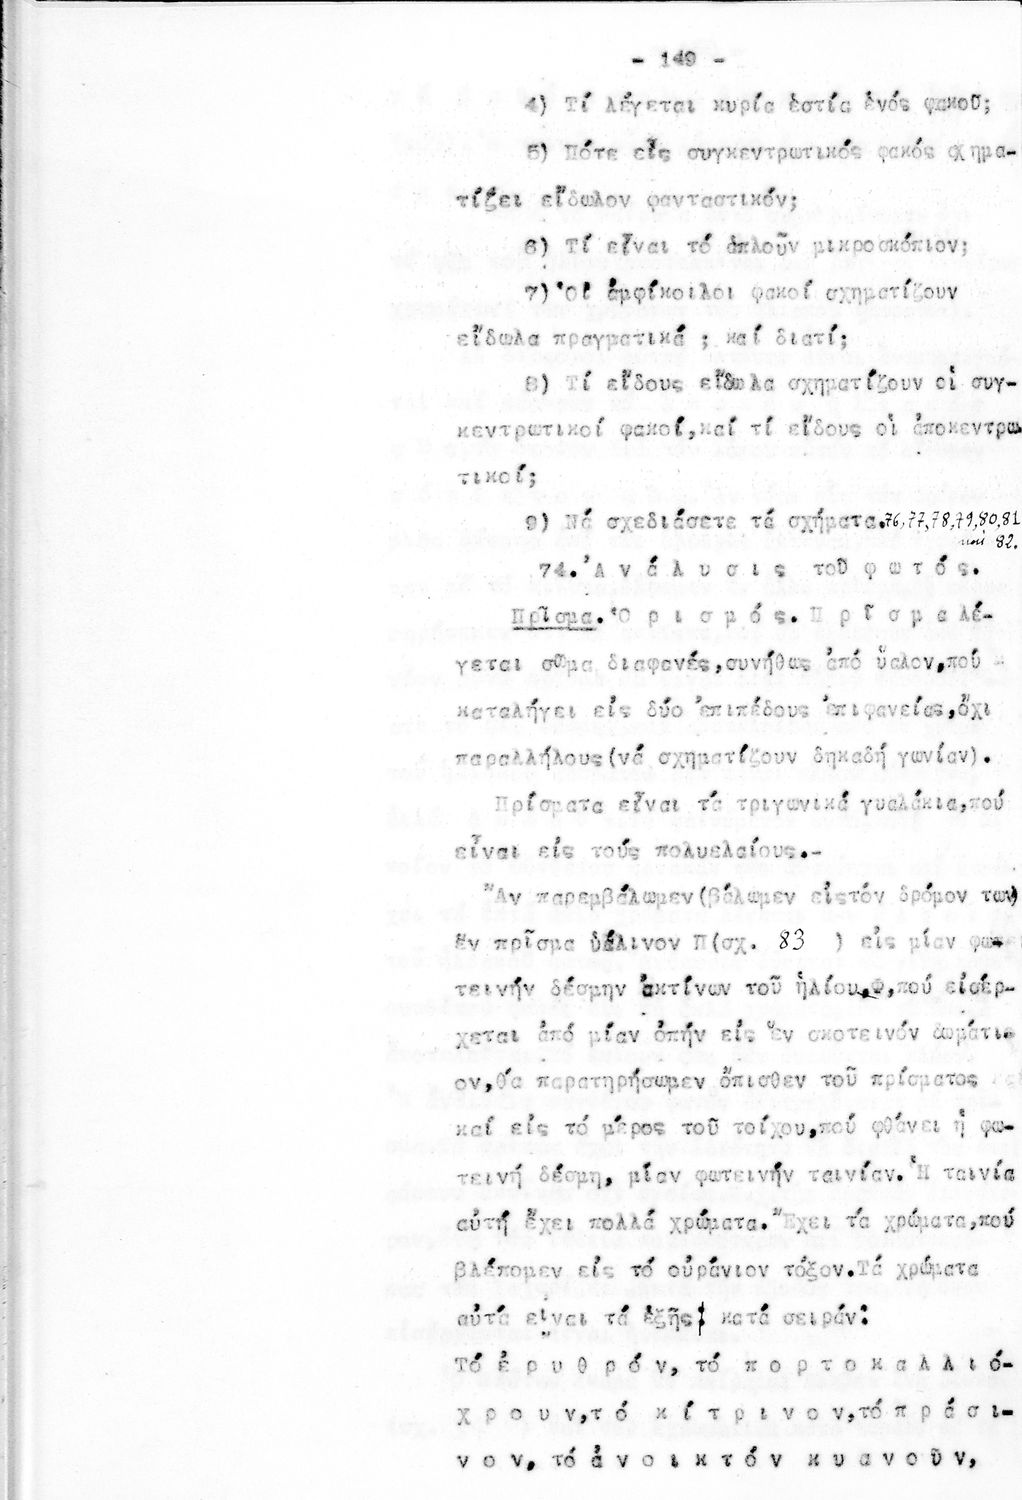 - 149 -
4) Τί λέγεται κυρία ἑστία ἑνός φακοῦ;
5) Πότε εἷς συγκεντρωτικός φακός σχημα-
τίζει εἴδωλον φανταστικόν;
6) Τί εἶναι τό ἁπλοῦν μικροσκόπιον;
7) Οἱ ἀμφίκοιλοι φακοί σχηματίζουν
εἴδωλα πραγματικά ; καί διατί;
8) Τί εἴδους εἴδωλα σχηματίζουν οἱ συγ-
κεντρωτικοί φακοί,καί τί εἴδους οἱ ἀποκεντρω
τικοί;
9) Νά σχεδιάσετε τά σχήματα.76,77,78,79,80,81
καί 82.
74.Ἀ ν ά λ υ σ ι ς τοῦ φ ω τ ό ς.
Πρῖσμα.Ὁ ρ ι σ μ ό ς. Π ρ ῖ σ μ α λέ-
γεται σῶμα διαφανές,συνήθως ἀπό ὕαλον,πού
καταλήγει εἰς δύο ἐπιπέδους ἐπιφανείας,ὄχι
παραλλήλους(νά σχηματίζουν δηκαδή γωνίαν).
Πρίσματα εἶναι τά τριγωνικά γυαλάκια,πού
εἶναι εἰς τούς πολυελαίους.-
Ἄν παρεμβάλωμεν(βάλωμεν εἰςτόν δρόμον των)
ἕν πρῖσμα ὑάλινον Π(σχ. 83 ) εἰς μίαν φω-
τεινήν δέσμην ἀκτίνων τοῦ ἡλίου,Φ,πού εἰσέρ-
χεται ἀπό μίαν ὀπήν εἰς ἕν σκοτεινόν δωμάτι-
ον,θά παρατηρήσωμεν ὄπισθεν τοῦ πρίσματος
καί εἰς τό μέρος τοῦ τοίχου,πού φθάνει ἡ φω-
τεινή δέσμη, μίαν φωτεινήν ταινίαν.Ἡ ταινία
αὐτή ἔχει πολλά χρώματα.Ἔχει τά χρώματα,πού
βλέπομεν εἰς τό οὐράνιον τόξον.Τά χρώματα
αὐτά εἶναι τά ἑξῆς κατά σειράν:
Τό ἐ ρ υ θ ρ ό ν, τό π ο ρ τ ο κ α λ λ ι ό-
χ ρ ο υ ν,τό κ ί τ ρ ι ν ο ν,τό π ρ ά σ ι-
ν ο ν, τό ἀ ν ο ι κ τ ό ν κ υ α ν ο ῦ ν,